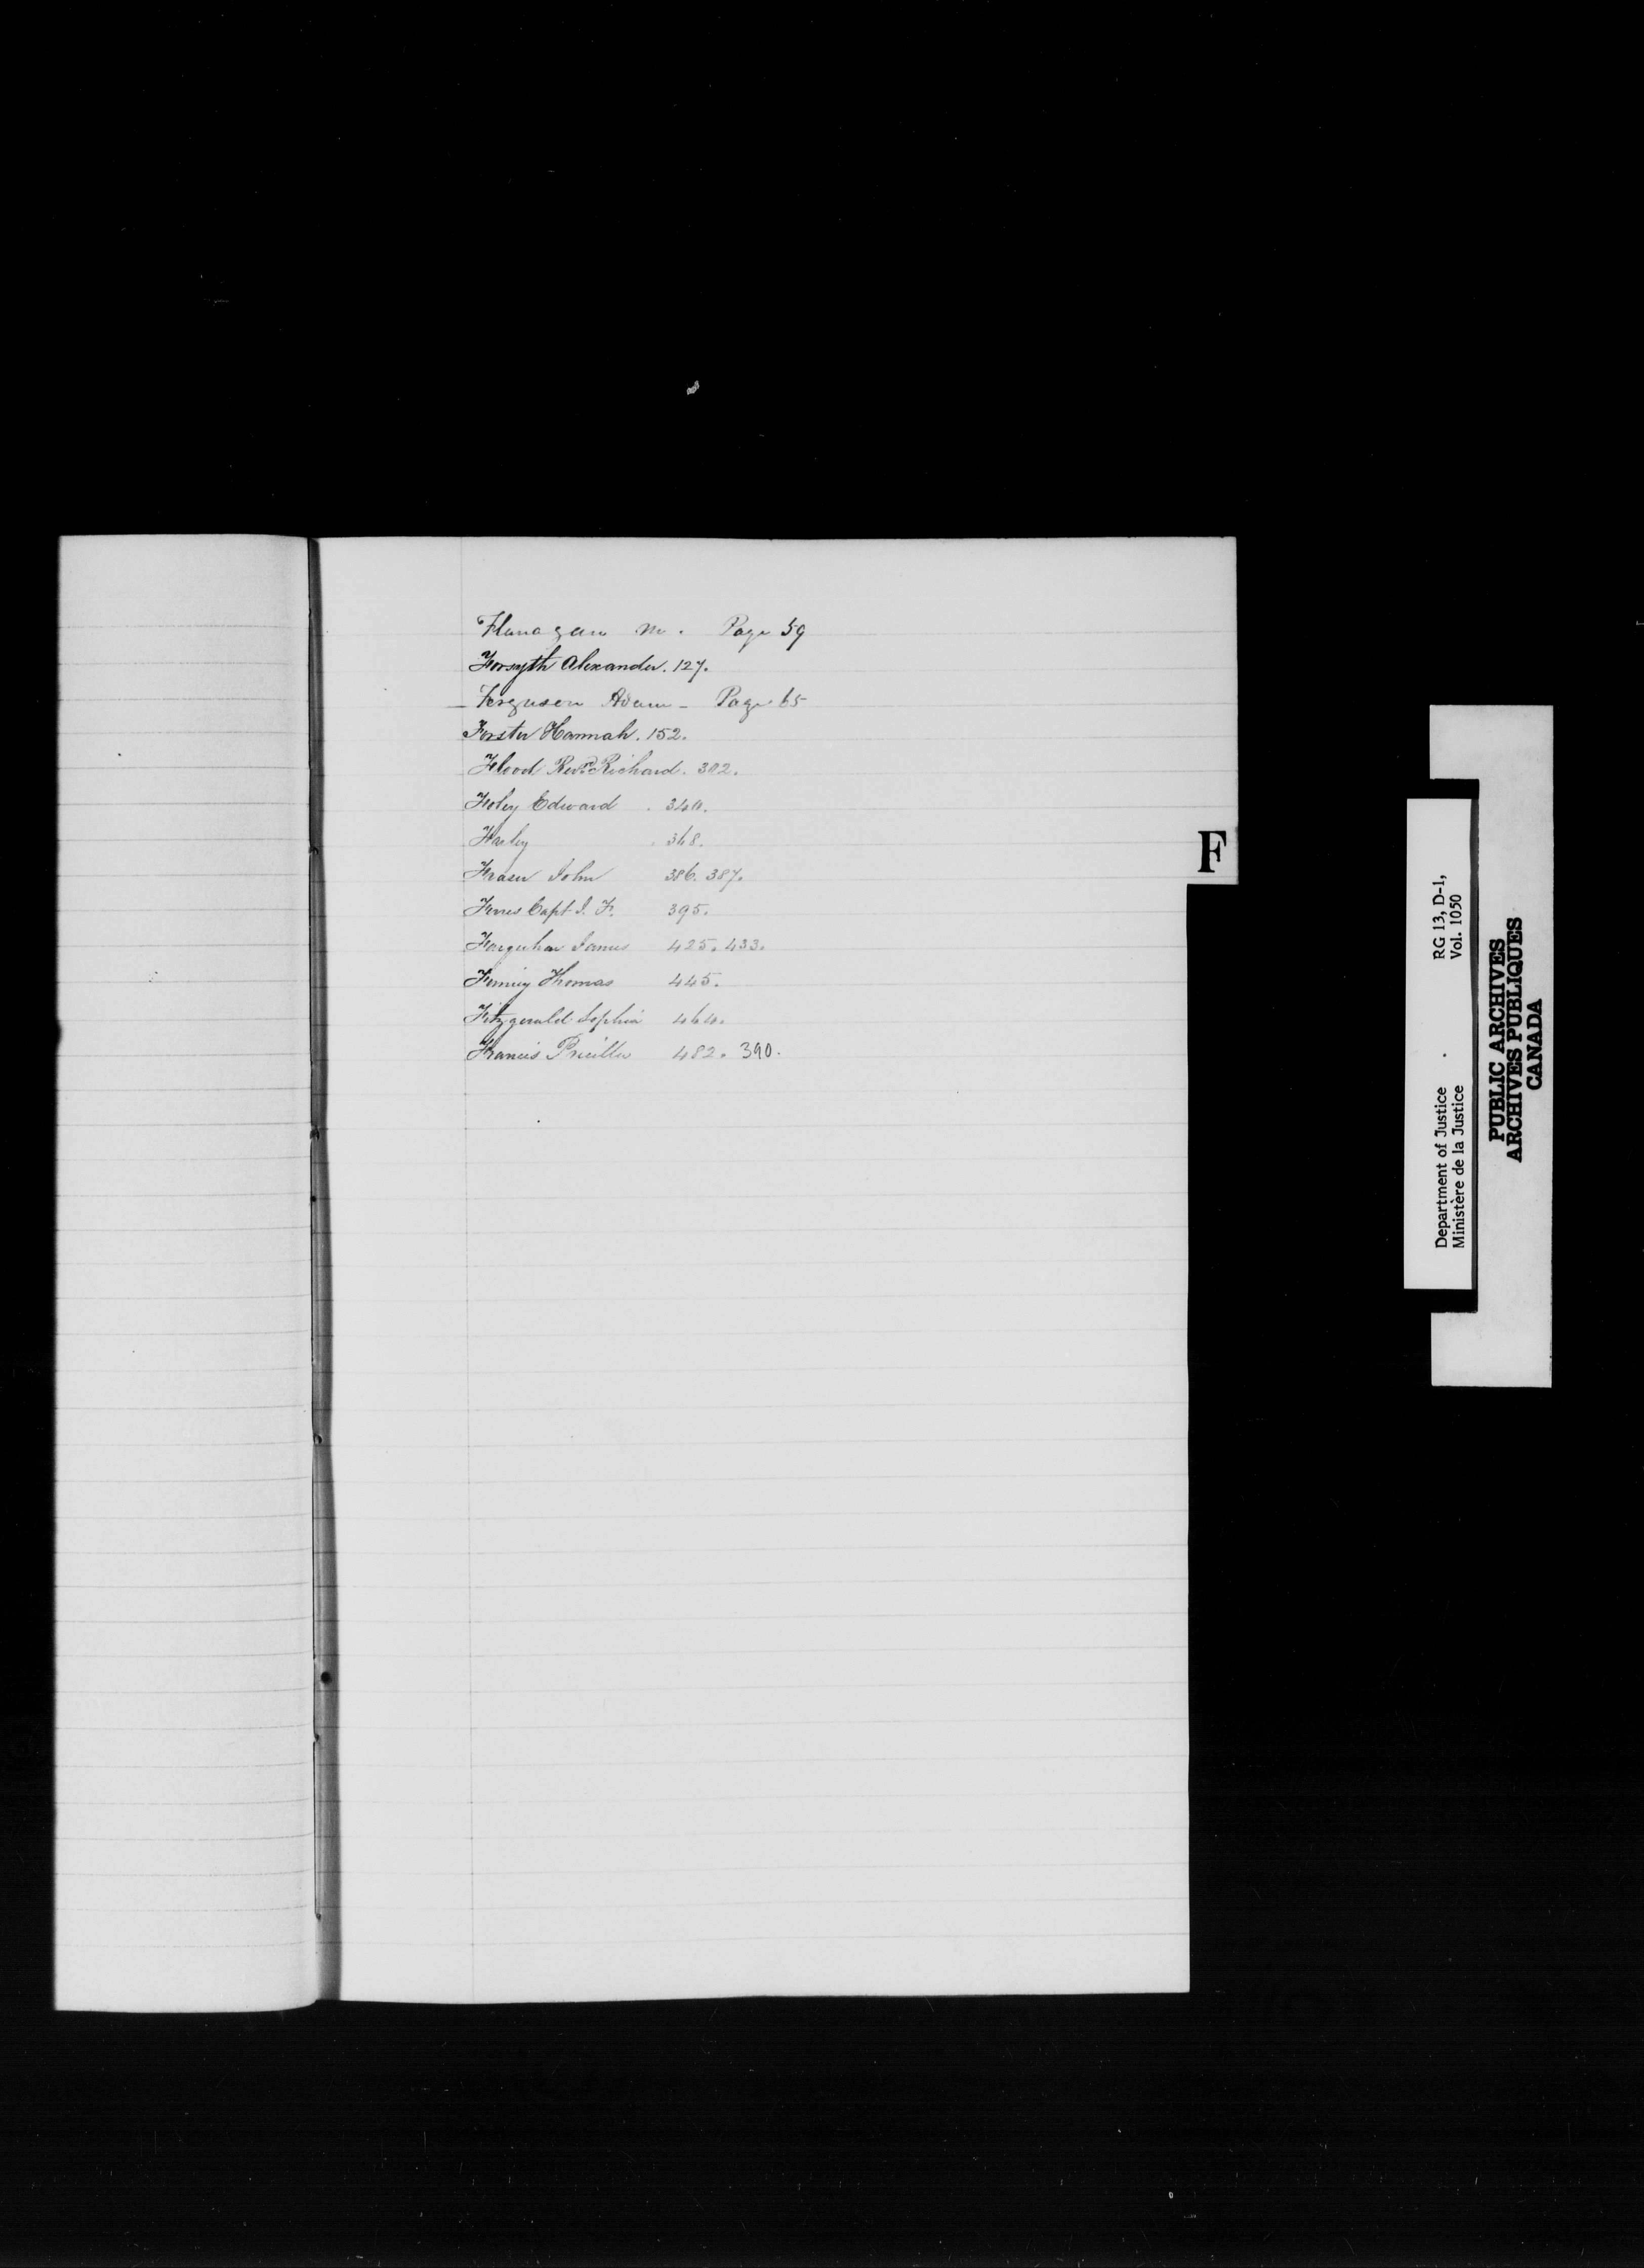 Flanagan M. Page 59
Forsyth Alexander. 127.
Ferguson Adam - Page 65
Forster Hannah. 152.
Flood Revd. Richard. 302.
Foley Edward . 340.
Farley . 368.
Fraser John 386. 387.
Capt J. F. 395.
Farquhar James 425. 433.
Thomas 445.
Fitzgerald Sophia 464.
Francis Pricilla 482. 390.
F
Department of Justice RG 13, D-1,
Ministère de la Justice Vol. 1050
PUBLIC ARCHIVES
ARCHIVES PUBLIQUES
CANADA